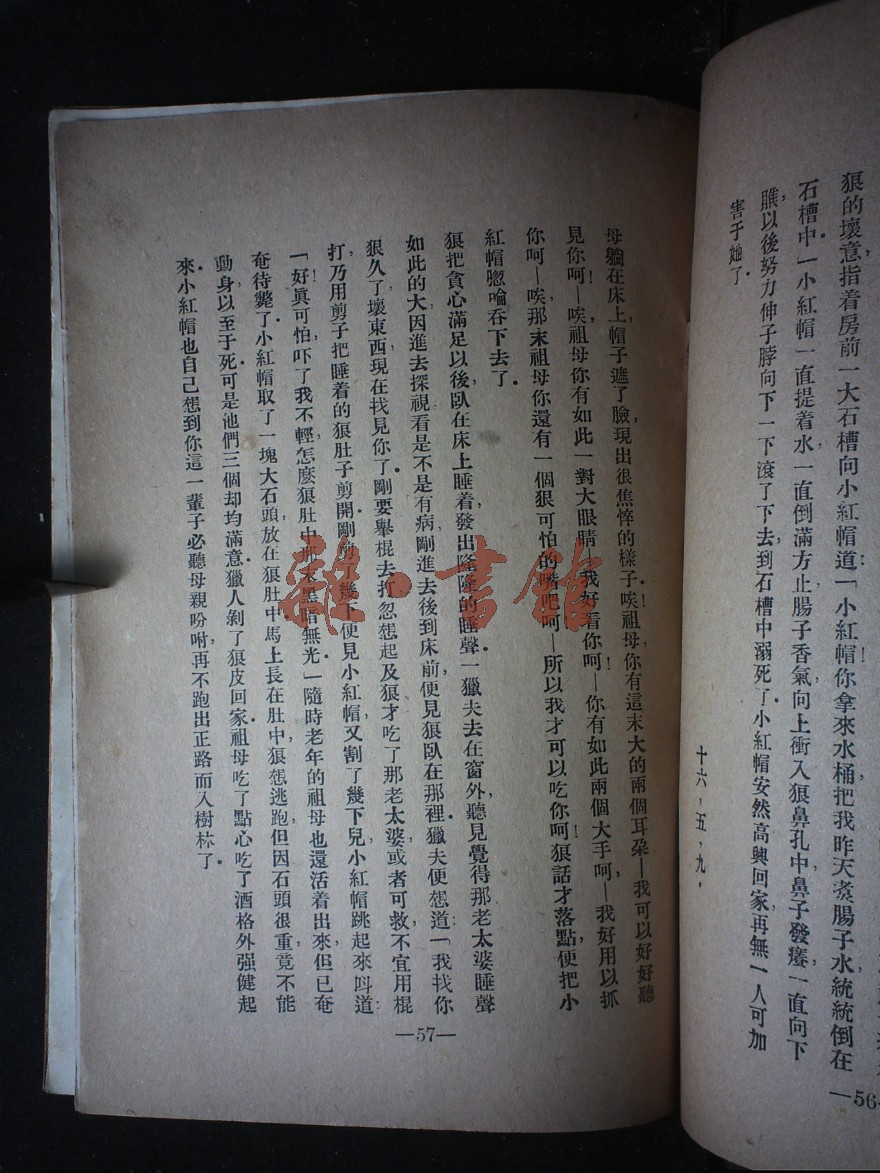 狼的壞意,指着房前一大石槽向小紅帽道:「小紅帽你拿來水桶,把我昨天煑腸子水統統倒在
石槽中.」小紅帽一直提着水一直倒滿方止,腸子香氣,向上衝入狼鼻孔中,鼻子發癢,一直向下
瞧,以後努力伸子脖向下一下滾了下去,到石槽中溺死了.小紅帽安然高興回家,再無一人可加
害于她了.
十六,五,九.
—56—
母躺在床上,帽子遮了臉,現出很焦悴的樣子.唉!祖母,你有這末大的兩個耳朶!—我可以好好聽
見你呵!—唉!祖母你有如此一對大眼睛!—我好看你呵!—你有如此兩個大手呵!—我好用以抓
你呵!—唉,那末祖母你還有一個狠可怕的嘴吧呵!—所以我才可以吃你呵.狼話才落點,便把小
紅帽唿嚨吞下去了.
狼把貪心滿足以後,臥在床上睡着,發出隆隆的睡聲.一獵夫去在窗外,聽見覺得那老太婆睡聲
如此的大,因進去探視看是不是有病,剛進去後到床前,便見狼臥在那裡,獵夫便想道:「我找你
狠久了,壞東西,現在找見你了.剛要舉棍去打,忽想起及狼才吃了那老太婆,或者可救,不宜用棍
打,乃用剪子把睡着的狼肚子剪開,剛剪了幾下,便見小紅帽,又割了幾下兒,小紅帽跳起來呌道:
「好眞可怕!吓了我不輕,怎麽狼肚中那末黑暗無光.」隨時老年的祖母也還活着出來,但已奄
奄待斃了,小紅帽取了一塊大石頭,放在狼肚中,馬上長在肚中,狼想逃跑,但因石頭很重,竟不能
動身,以至于死,可是他們三個却均滿意,獵人剝了狼皮回家,祖母吃了點心,吃了酒,格外强健起
來.小紅帽也自己想到你這一輩子必聽母親吩咐,再不跑出正路而入樹林了.
—57—
雜·書館